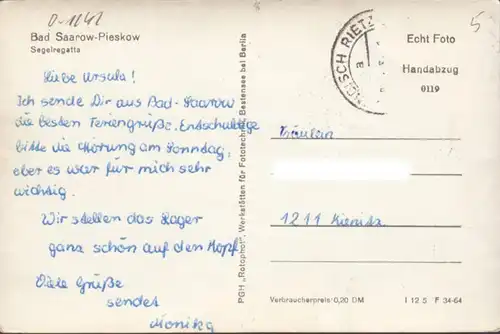 0-1242
5
Bad Saarow-Pieskow
Segelregatta
Liebe Ursula!
Ich sende Dir aus Bad-Saarow
die besten Feriengrüße. Entschuldige
bitte die Störung am Sonntag,
aber es war für mich sehr
wichtig.
Wir stellen das Lager
ganz schön auf den Kopf.
Viele Grüße
sendet
Monika
PGH „Rotophot“, Werkstätten für Fototechnik, Bestensee bei Berlin
RISCH RIETZ
Echt Foto
Handabzug
0119
Fräulein
1211 Kienitz
Verbraucherpreis: 0,20 DM
I 12 5 F 34-64